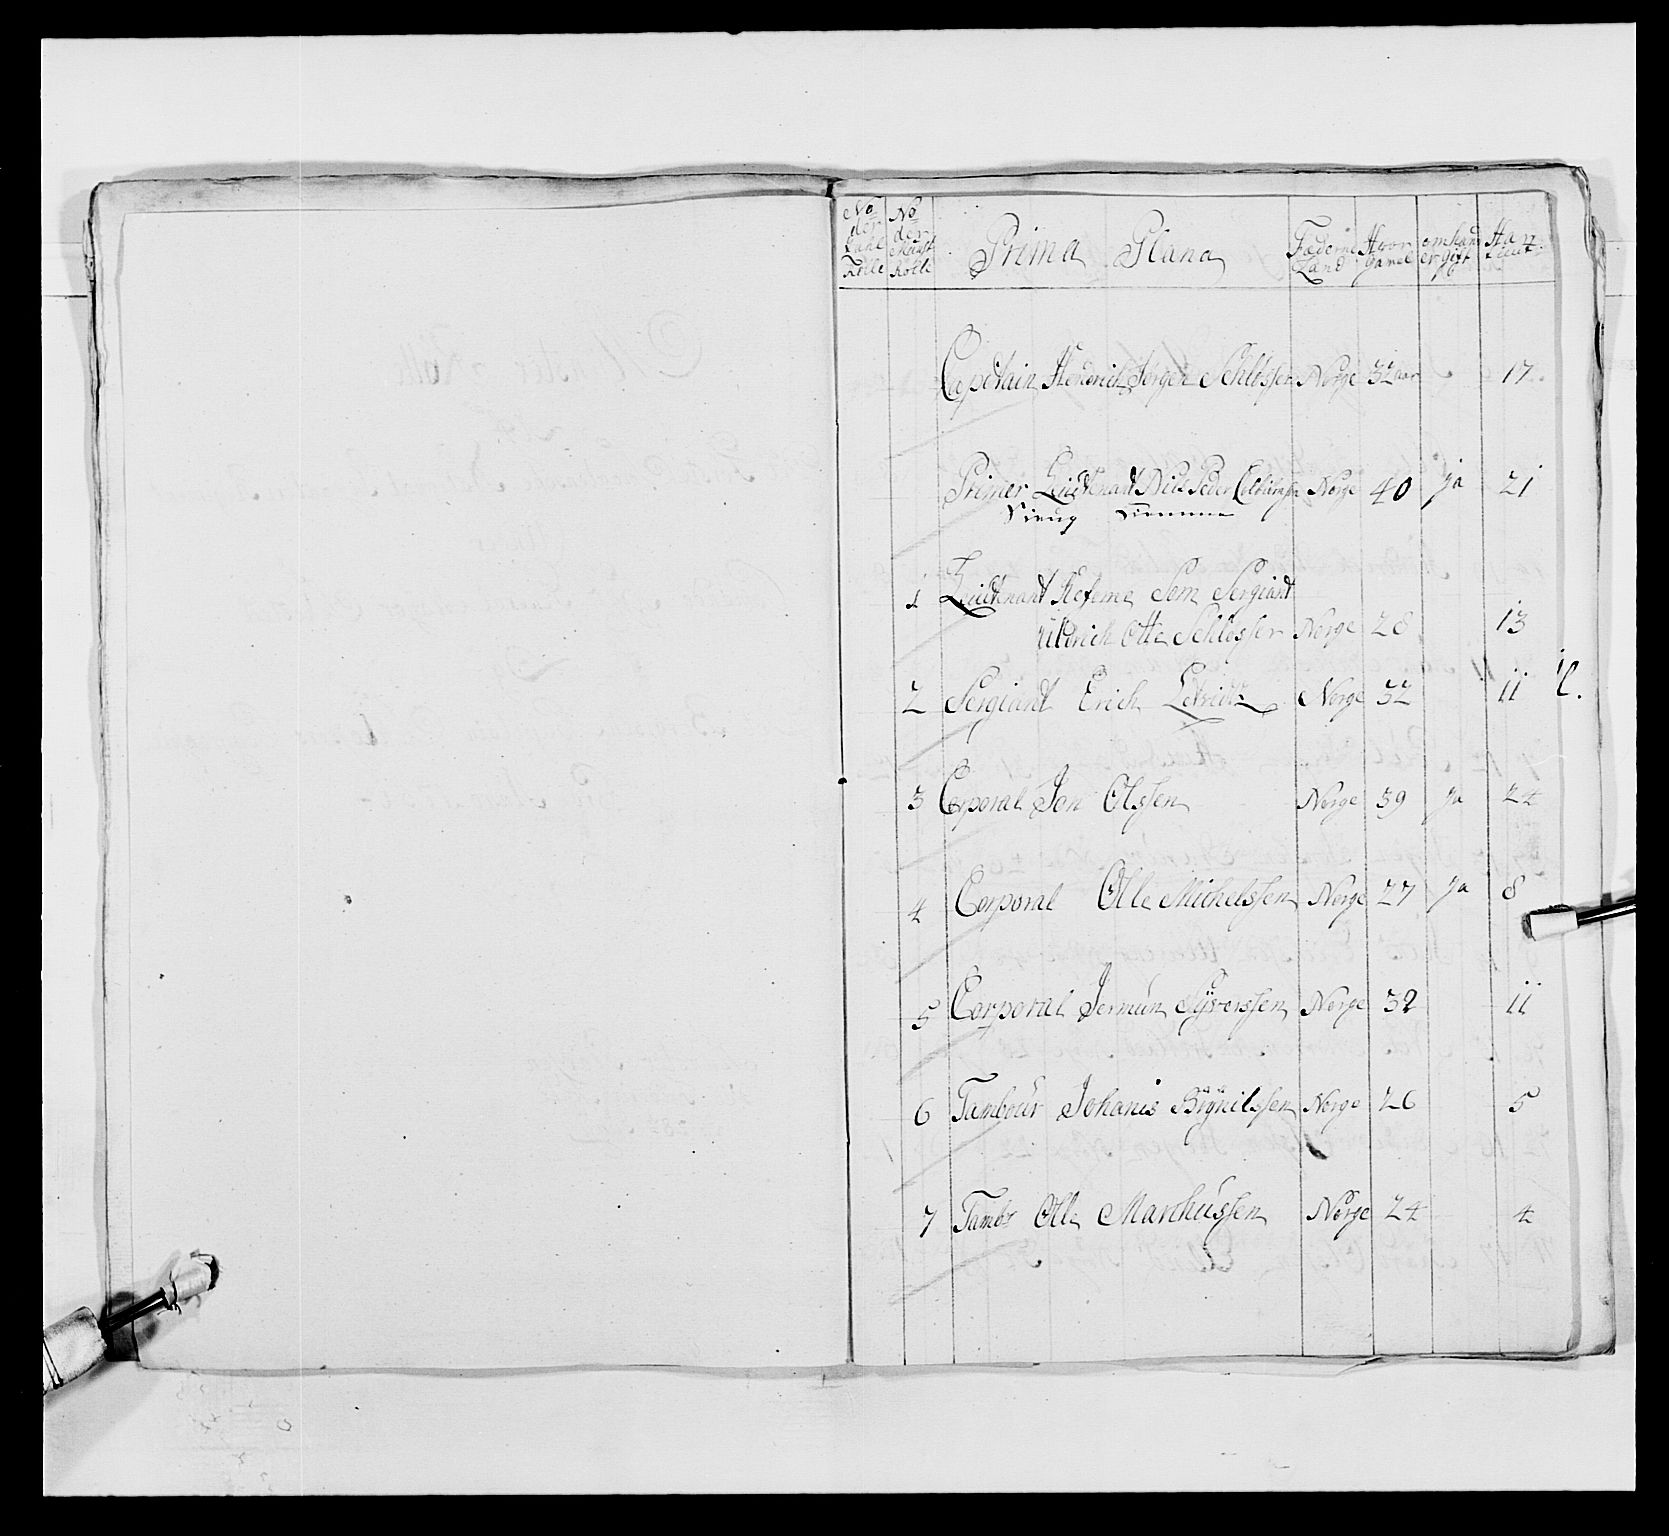 No der Rulle
No der Rolle
Prima Plana
Fæderne Land
Hvor gamel
om hand er gift
Har tient
Capitain Hendrich Jørgen Schlösser Norge 32 aar 17
Primer Leutenant Niels Peder Norge 40 ja 21
1 Leutenant Refeme Som Sergiant
Ulrich Otte Schlösser Norge 28 13
2 Sergiant Erich Norge 32 11
3 Corporal Jon Olssen Norge 39 ja 24
4 Corporal Olle Michelssen Norge 27 ja 8
5 Corporal Jermún Syverssen Norge 32 11
6 Tamboúr Johanis Norge 26 5
7 Tambr Olle Marchússen Norge 24 4